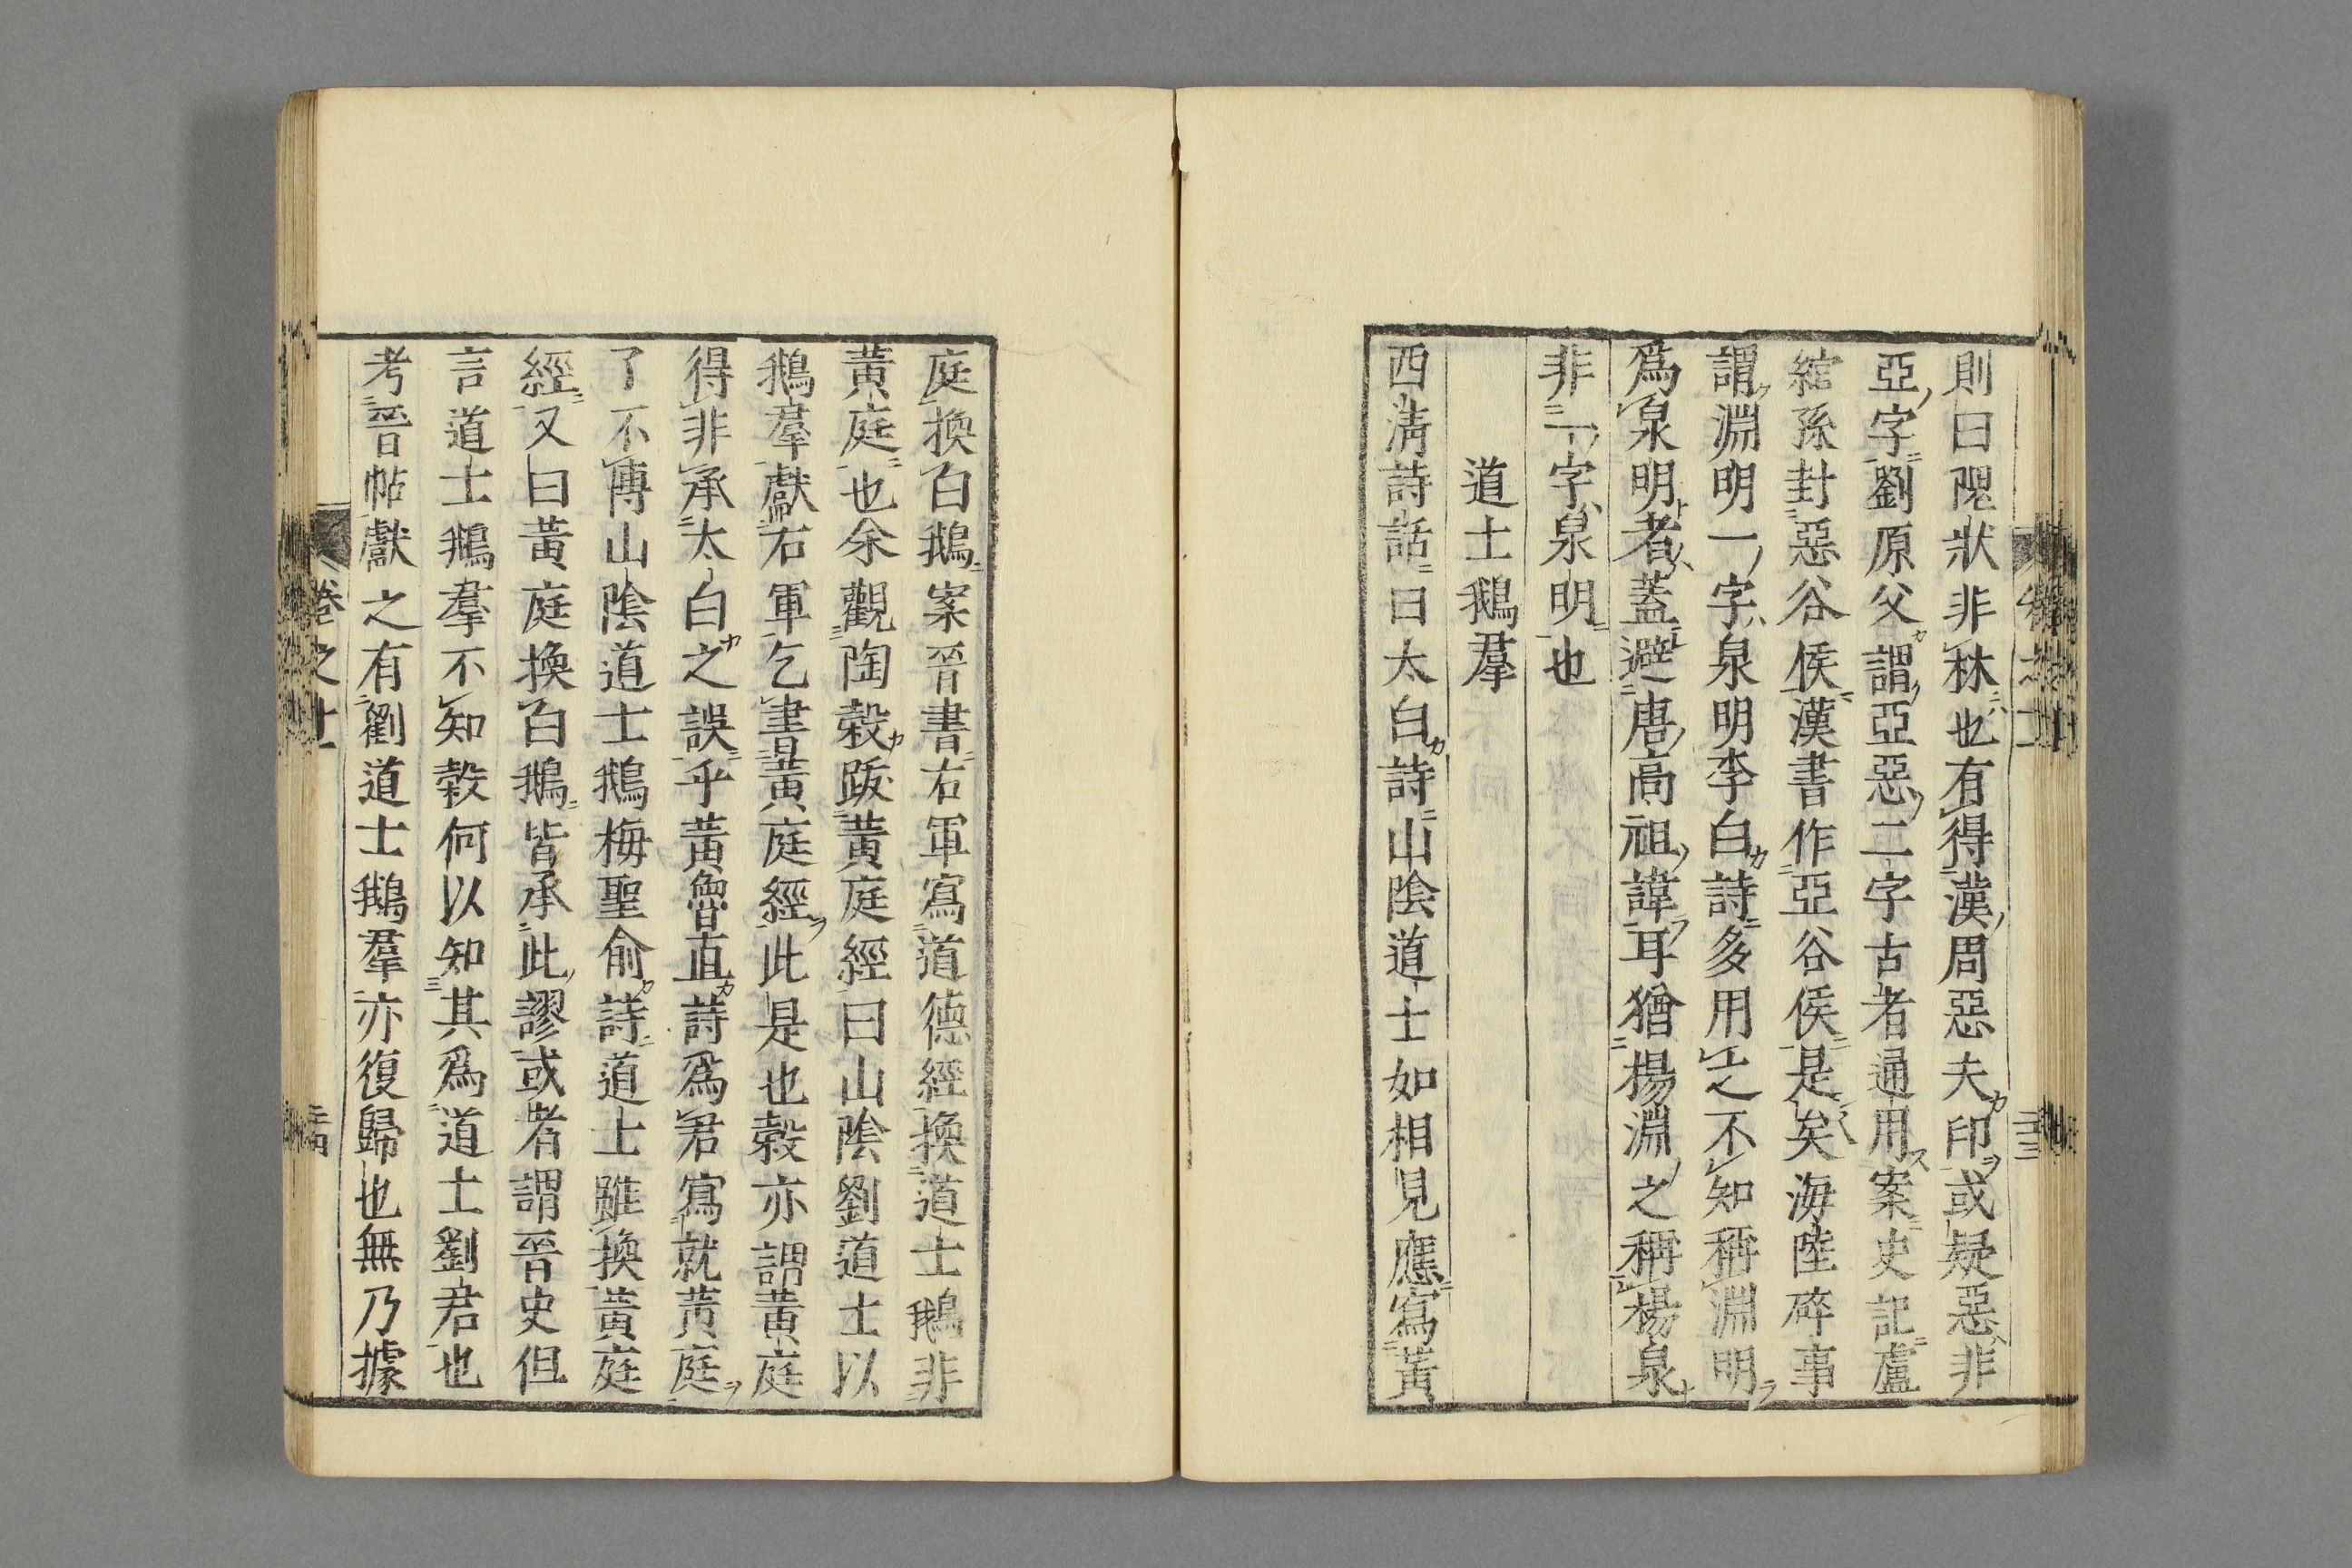 則曰隉狀非秣也有得漢周惡夫印或疑惡非
亞字劉原父謂亞惡二字古者通用案史記盧
綰孫封惡谷侯漢書作亞谷侯是矣海陸碎事
謂淵明一字泉明李白詩多用之不知稱淵明
爲泉明者蓋避唐高祖諱耳猶楊淵之稱楊泉
非一字泉明也
道士鵝羣
西淸詩話曰太白詩山陰道士如相見應寫黃
庭換白鵝案晉書右軍寫道德經換道士鵝非
黃庭也余觀陶穀跋黃庭經曰山陰劉道士以
鵝羣獻右軍乞書黃庭經此是也穀亦謂黃庭
得非承太白之誤乎黃魯直詩爲君寫就黃庭
了不博山陰道士鵝梅聖俞詩道士雖換黃庭
經又曰黃庭換白鵝皆承此謬或者謂晉史但
言道士鵝羣不知穀何以知其爲道士劉君也
考晉帖獻之有劉道士鵝羣亦復歸也無乃據
卷之十